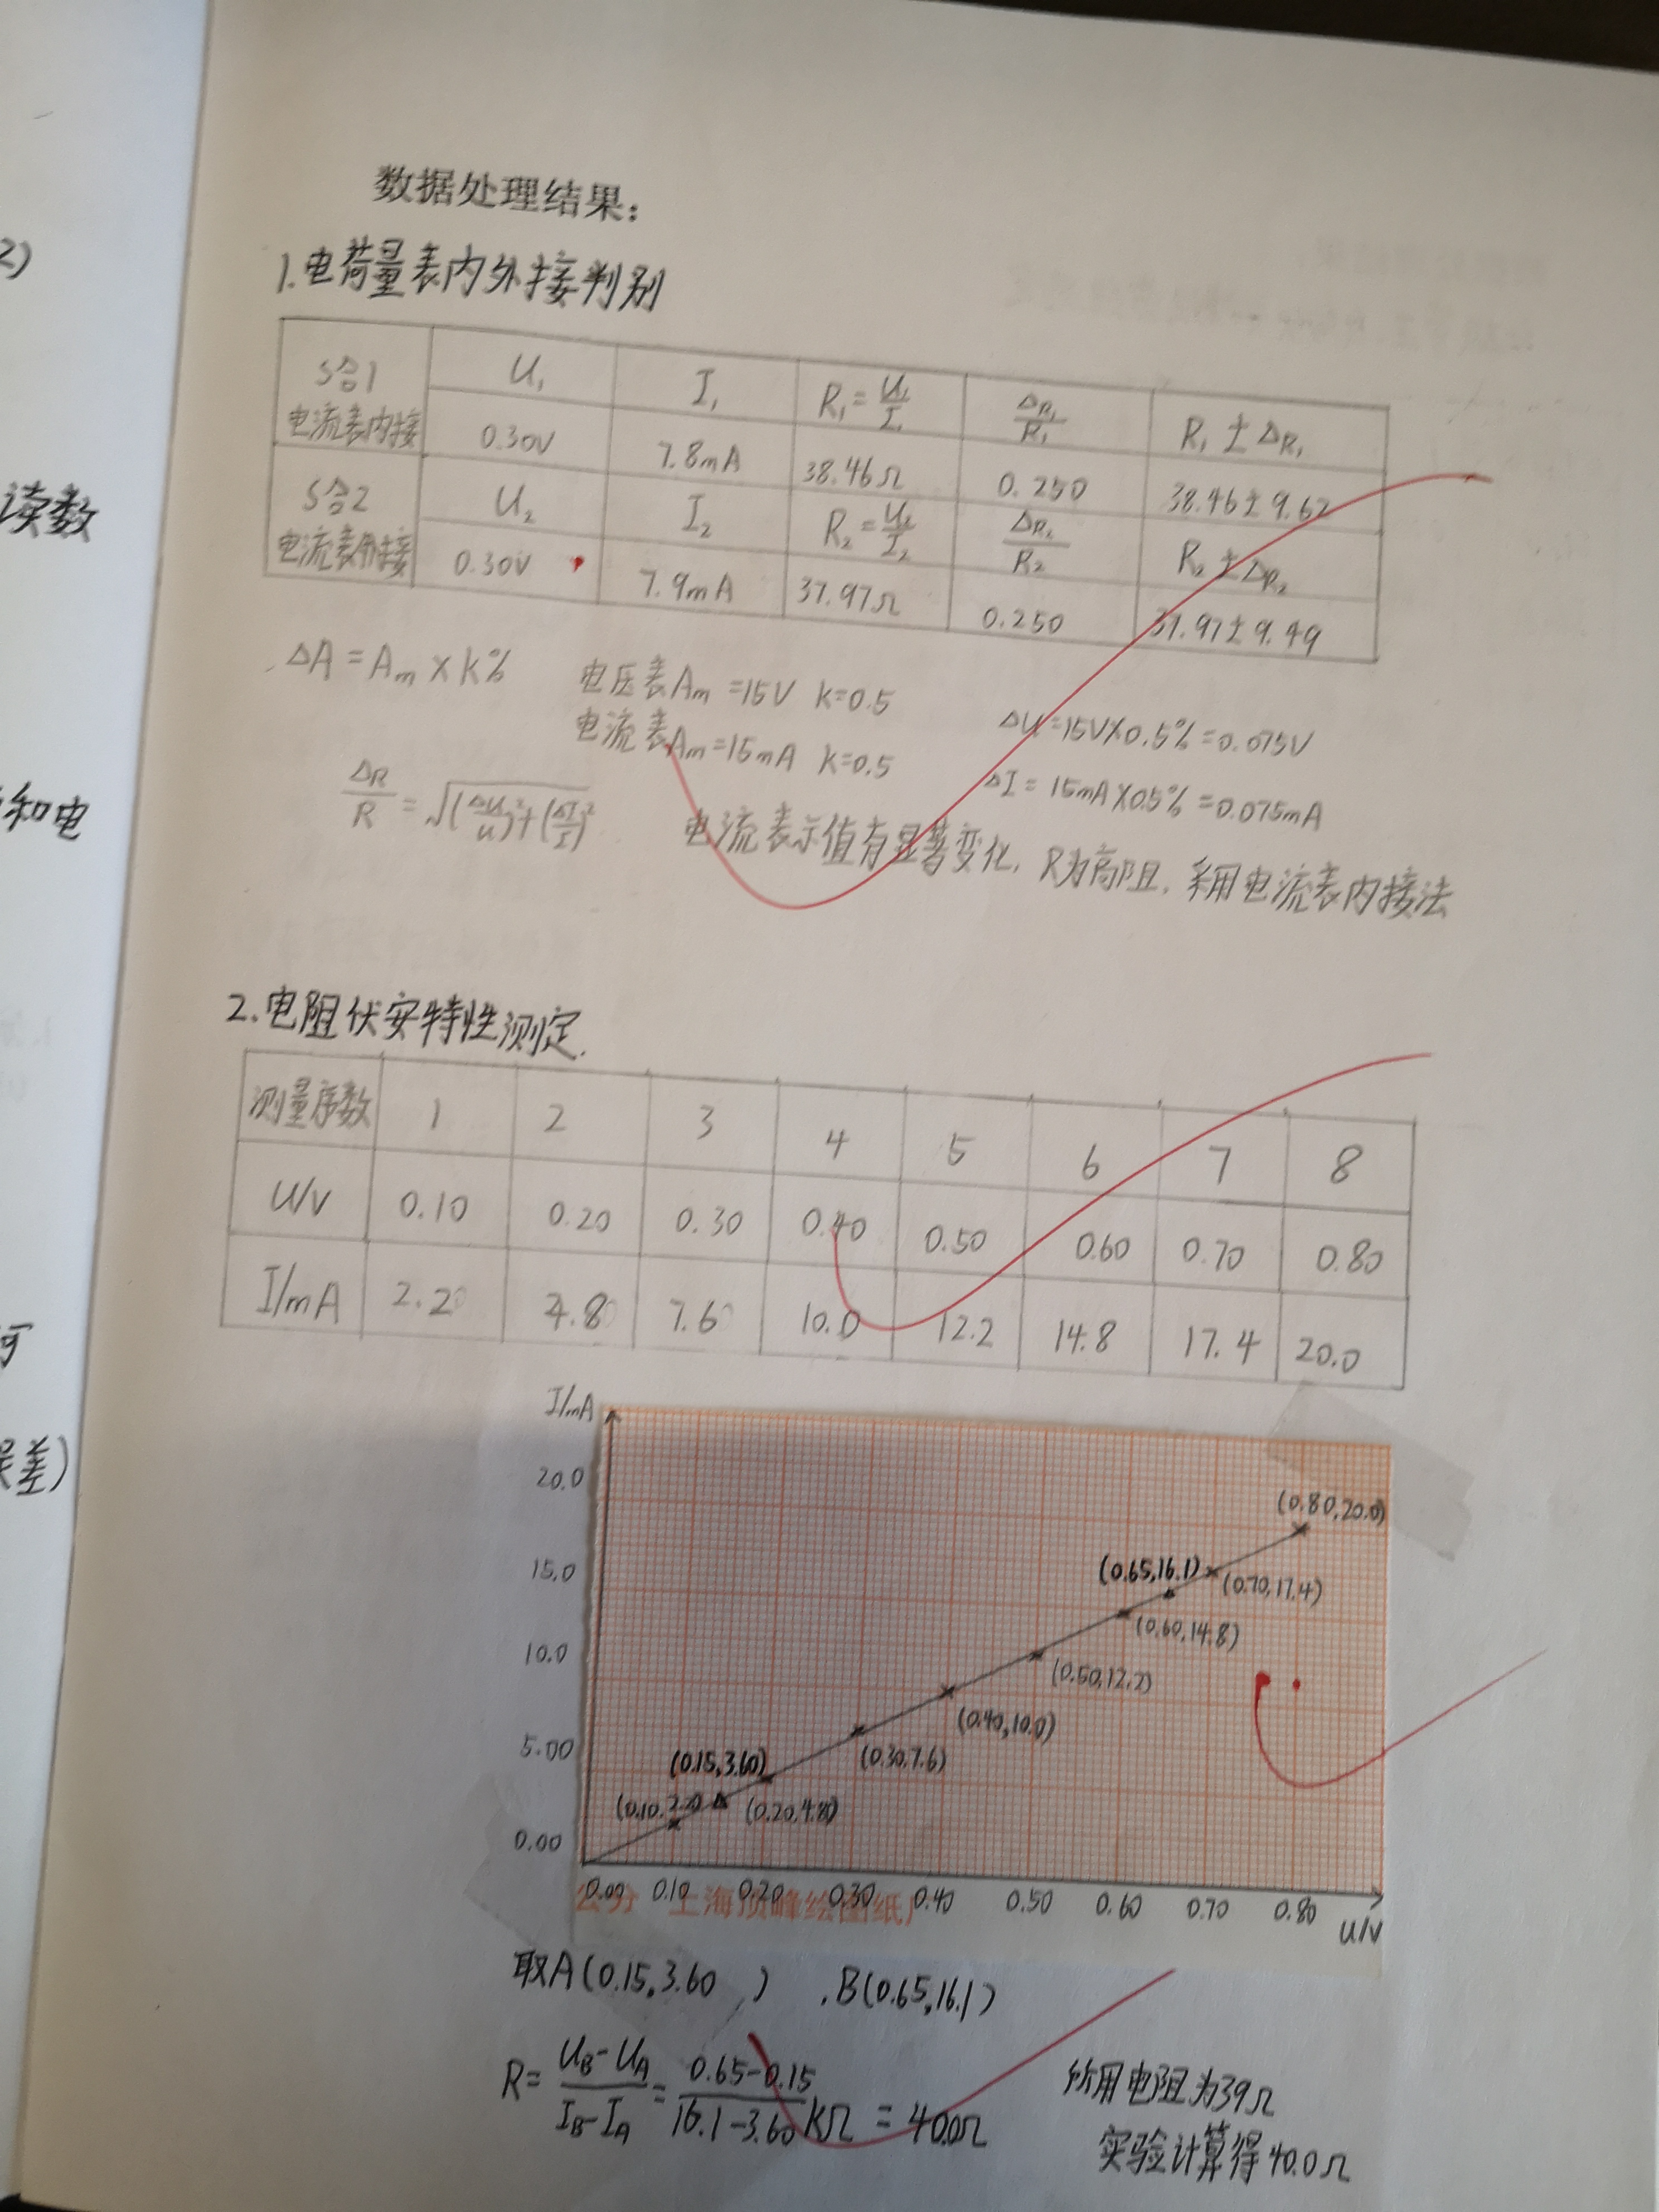 2)
读数
和电
差)
数据处理结果:
1.电荷量表内外接判别
S合1 电流表内接 U₁ I₁ R₁=U₁/I₁ ΔR₁/R₁ R₁±ΔR₁
0.30V 7.8mA 38.46Ω 0.250 38.46±9.62
S合2 电流表外接 U₂ I₂ R₂=U₂/I₂ ΔR₂/R₂ R₂±ΔR₂
0.30V 7.9mA 37.97Ω 0.250 37.97±9.49
ΔA=Am×K% 电压表Am=15V K=0.5 ΔU=15V×0.5%=0.075V
电流表Am=15mA K=0.5 ΔI=15mA×0.5%=0.075mA
ΔR/R=√((ΔU/U)²+(ΔI/I)²)
电流表示值有显著变化,R为高阻,采用电流表内接法
2.电阻伏安特性测定.
测量序数 1 2 3 4 5 6 7 8
U/V 0.10 0.20 0.30 0.40 0.50 0.60 0.70 0.80
I/mA 2.20 4.80 7.60 10.0 12.2 14.8 17.4 20.0
I/mA
20.0
(0.80,20.0)
15.0
(0.65,16.1)
(0.70,17.4)
(0.60,14.8)
10.0
(0.50,12.2)
(0.40,10.0)
5.00
(0.15,3.60)
(0.30,7.6)
(0.10,2.20)
(0.20,4.80)
0.00
0.00 0.10 0.20 0.30 0.40 0.50 0.60 0.70 0.80
公分 上海顶峰绘图纸厂
U/V
取A(0.15,3.60) ,B(0.65,16.1)
R=(U_B-U_A)/(I_B-I_A)=(0.65-0.15)/(16.1-3.60)KΩ=40.0Ω
所用电阻为39Ω
实验计算得40.0Ω